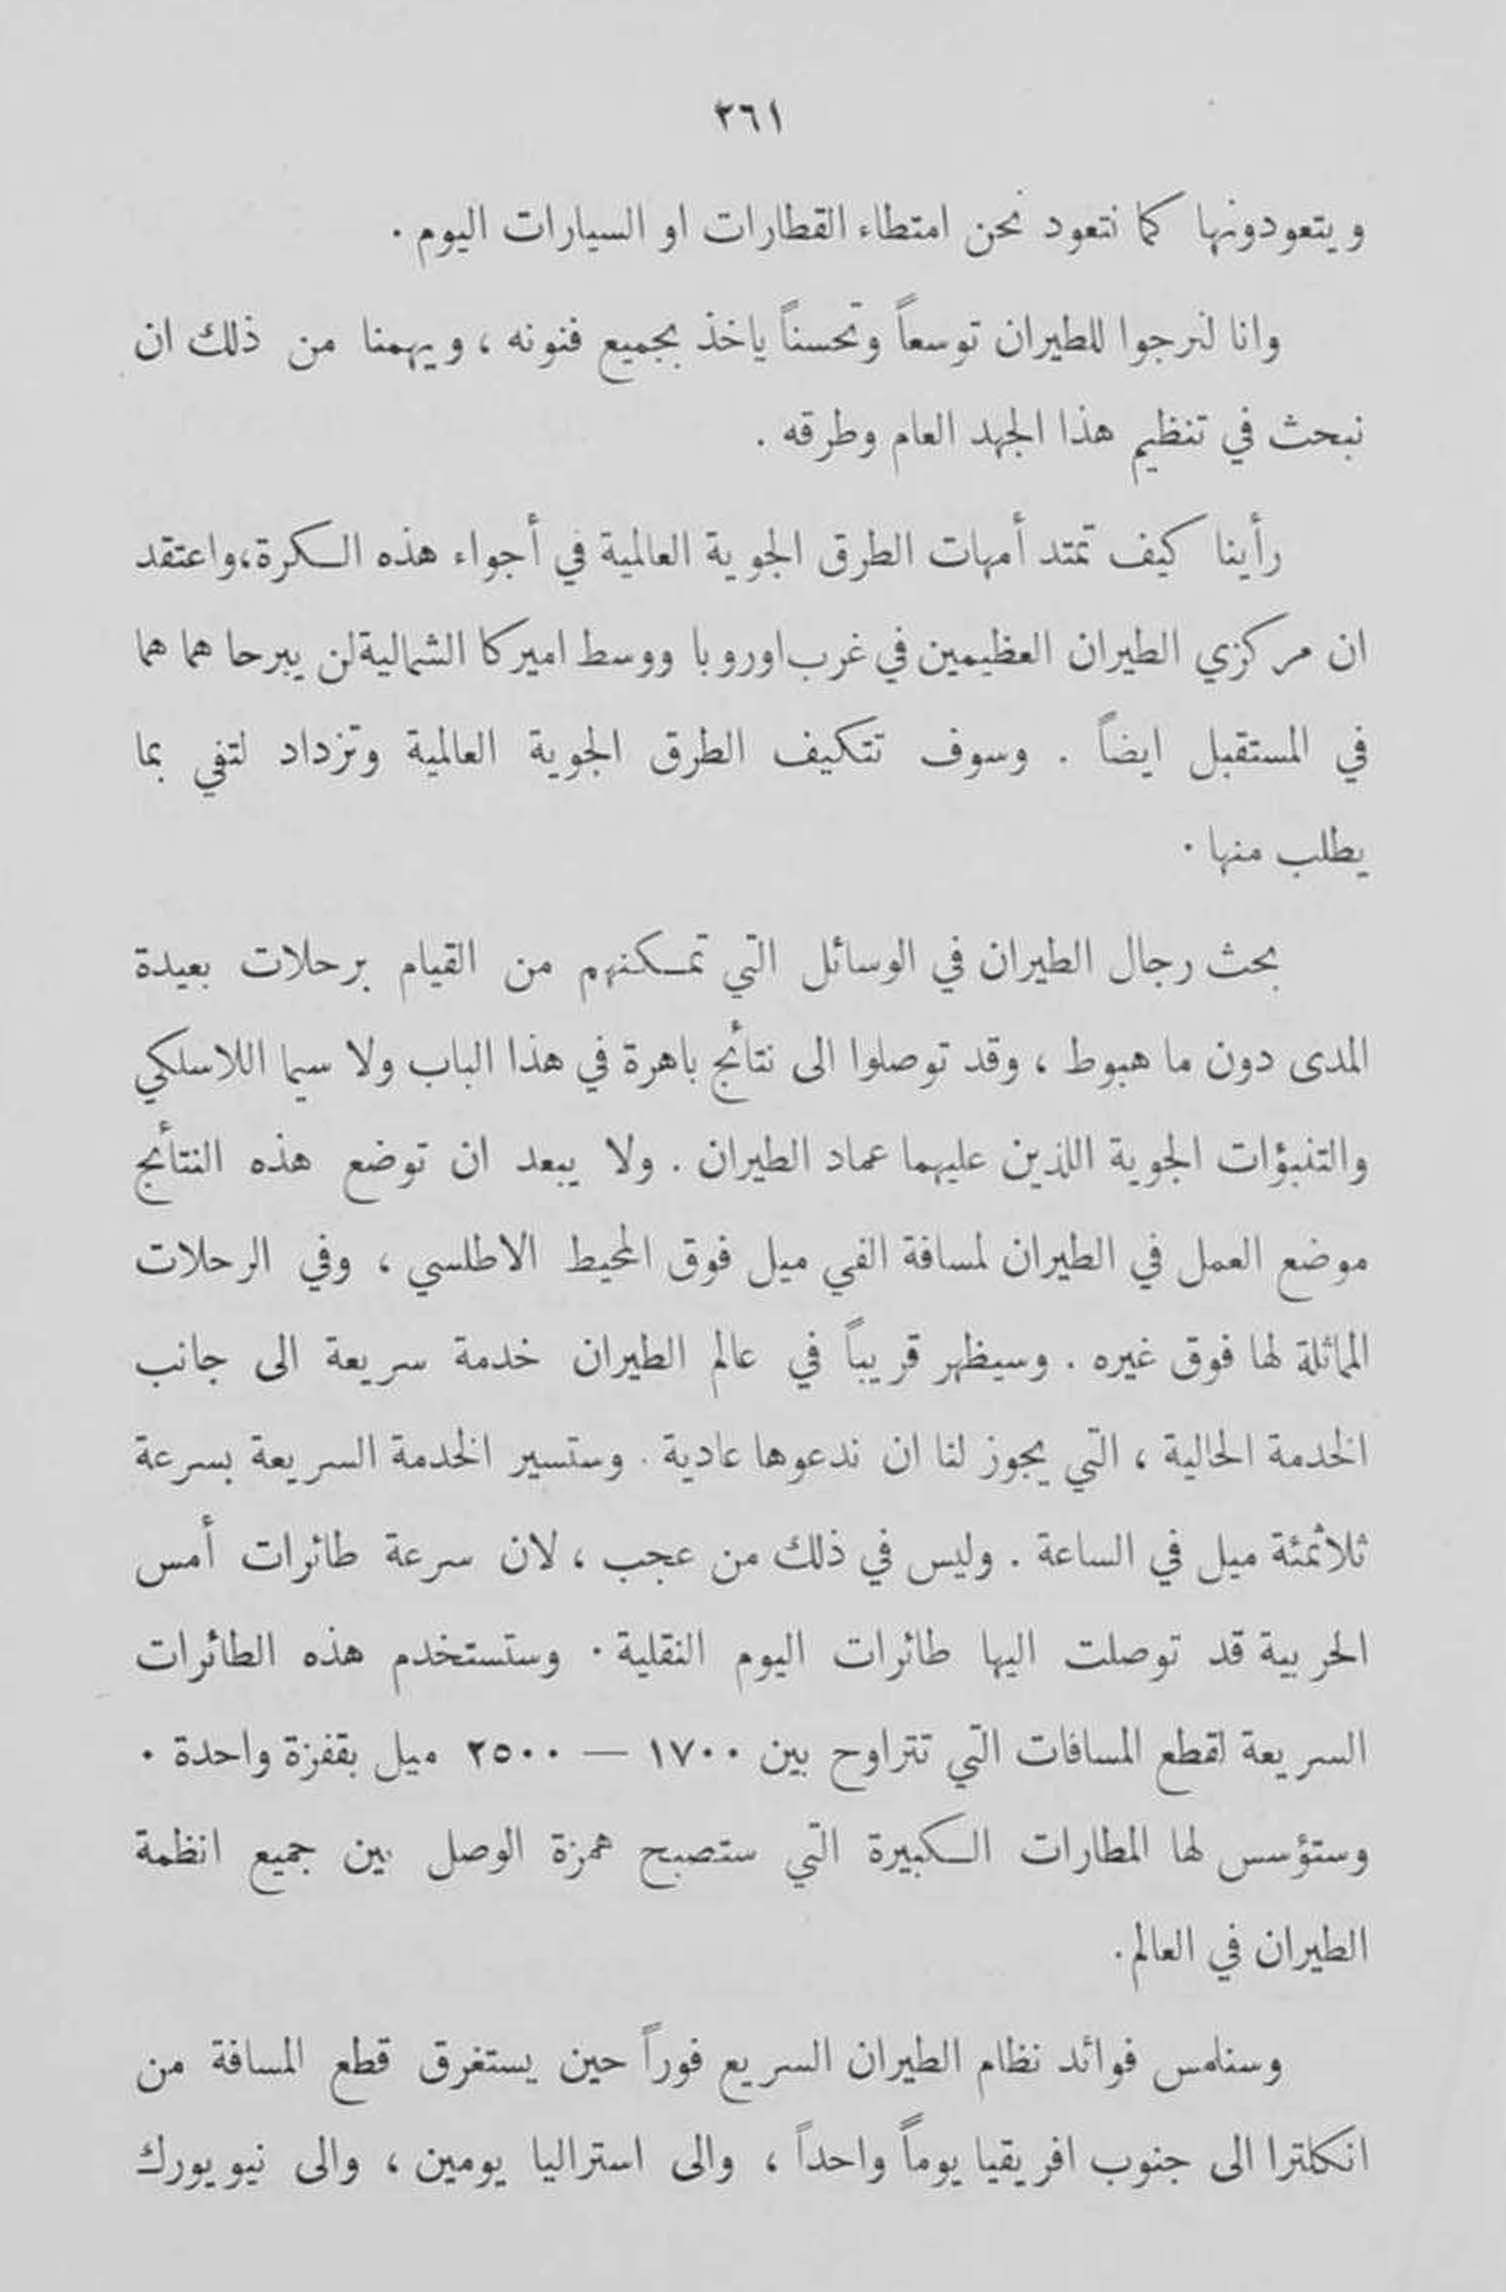 ٢٦١
ويتعودونها كما نتعود نحن امتطاء القطارات او السيارات اليوم .
وانا لنرجوا للطيران توسعاً وتحسناً ياخذ بجميع فنونه ، ويهمنا من ذلك ان
نبحث في تنظيم هذا الجهد العام وطرقه .
رأينا كيف تمتد أمهات الطرق الجوية العالمية في أجواء هذه الكرة،واعتقد
ان مركزي الطيران العظيمين في غرب اوروبا ووسط اميركا الشمالية لن يبرحا هما هما
في المستقبل ايضاً . وسوف تتكيف الطرق الجوية العالمية وتزداد لتفي بما
يطلب منها .
بحث رجال الطيران في الوسائل التي تمكنهم من القيام برحلات بعيدة
المدى دون ما هبوط ، وقد توصلوا الى نتائج باهرة في هذا الباب ولا سيما اللاسلكي
والتنبؤات الجوية اللذين عليهما عماد الطيران . ولا يبعد ان توضع هذه النتائج
موضع العمل في الطيران لمسافة الفي ميل فوق المحيط الاطلسي ، وفي الرحلات
المماثلة لها فوق غيره . وسيظهر قريباً في عالم الطيران خدمة سريعة الى جانب
الخدمة الحالية ، التي يجوز لنا ان ندعوها عادية . وستسير الخدمة السريعة بسرعة
ثلاثمئة ميل في الساعة . وليس في ذلك من عجب ، لان سرعة طائرات أمس
الحربية قد توصلت اليها طائرات اليوم النقلية . وستستخدم هذه الطائرات
السريعة لقطع المسافات التي تتراوح بين ١٧٠٠ — ٢٥٠٠ ميل بقفزة واحدة .
وستؤسس لها المطارات الكبيرة التي ستصبح همزة الوصل بين جميع انظمة
الطيران في العالم .
وسنلمس فوائد نظام الطيران السريع فوراً حين يستغرق قطع المسافة من
انكلترا الى جنوب افريقيا يوماً واحداً ، والى استراليا يومين ، والى نيويورك